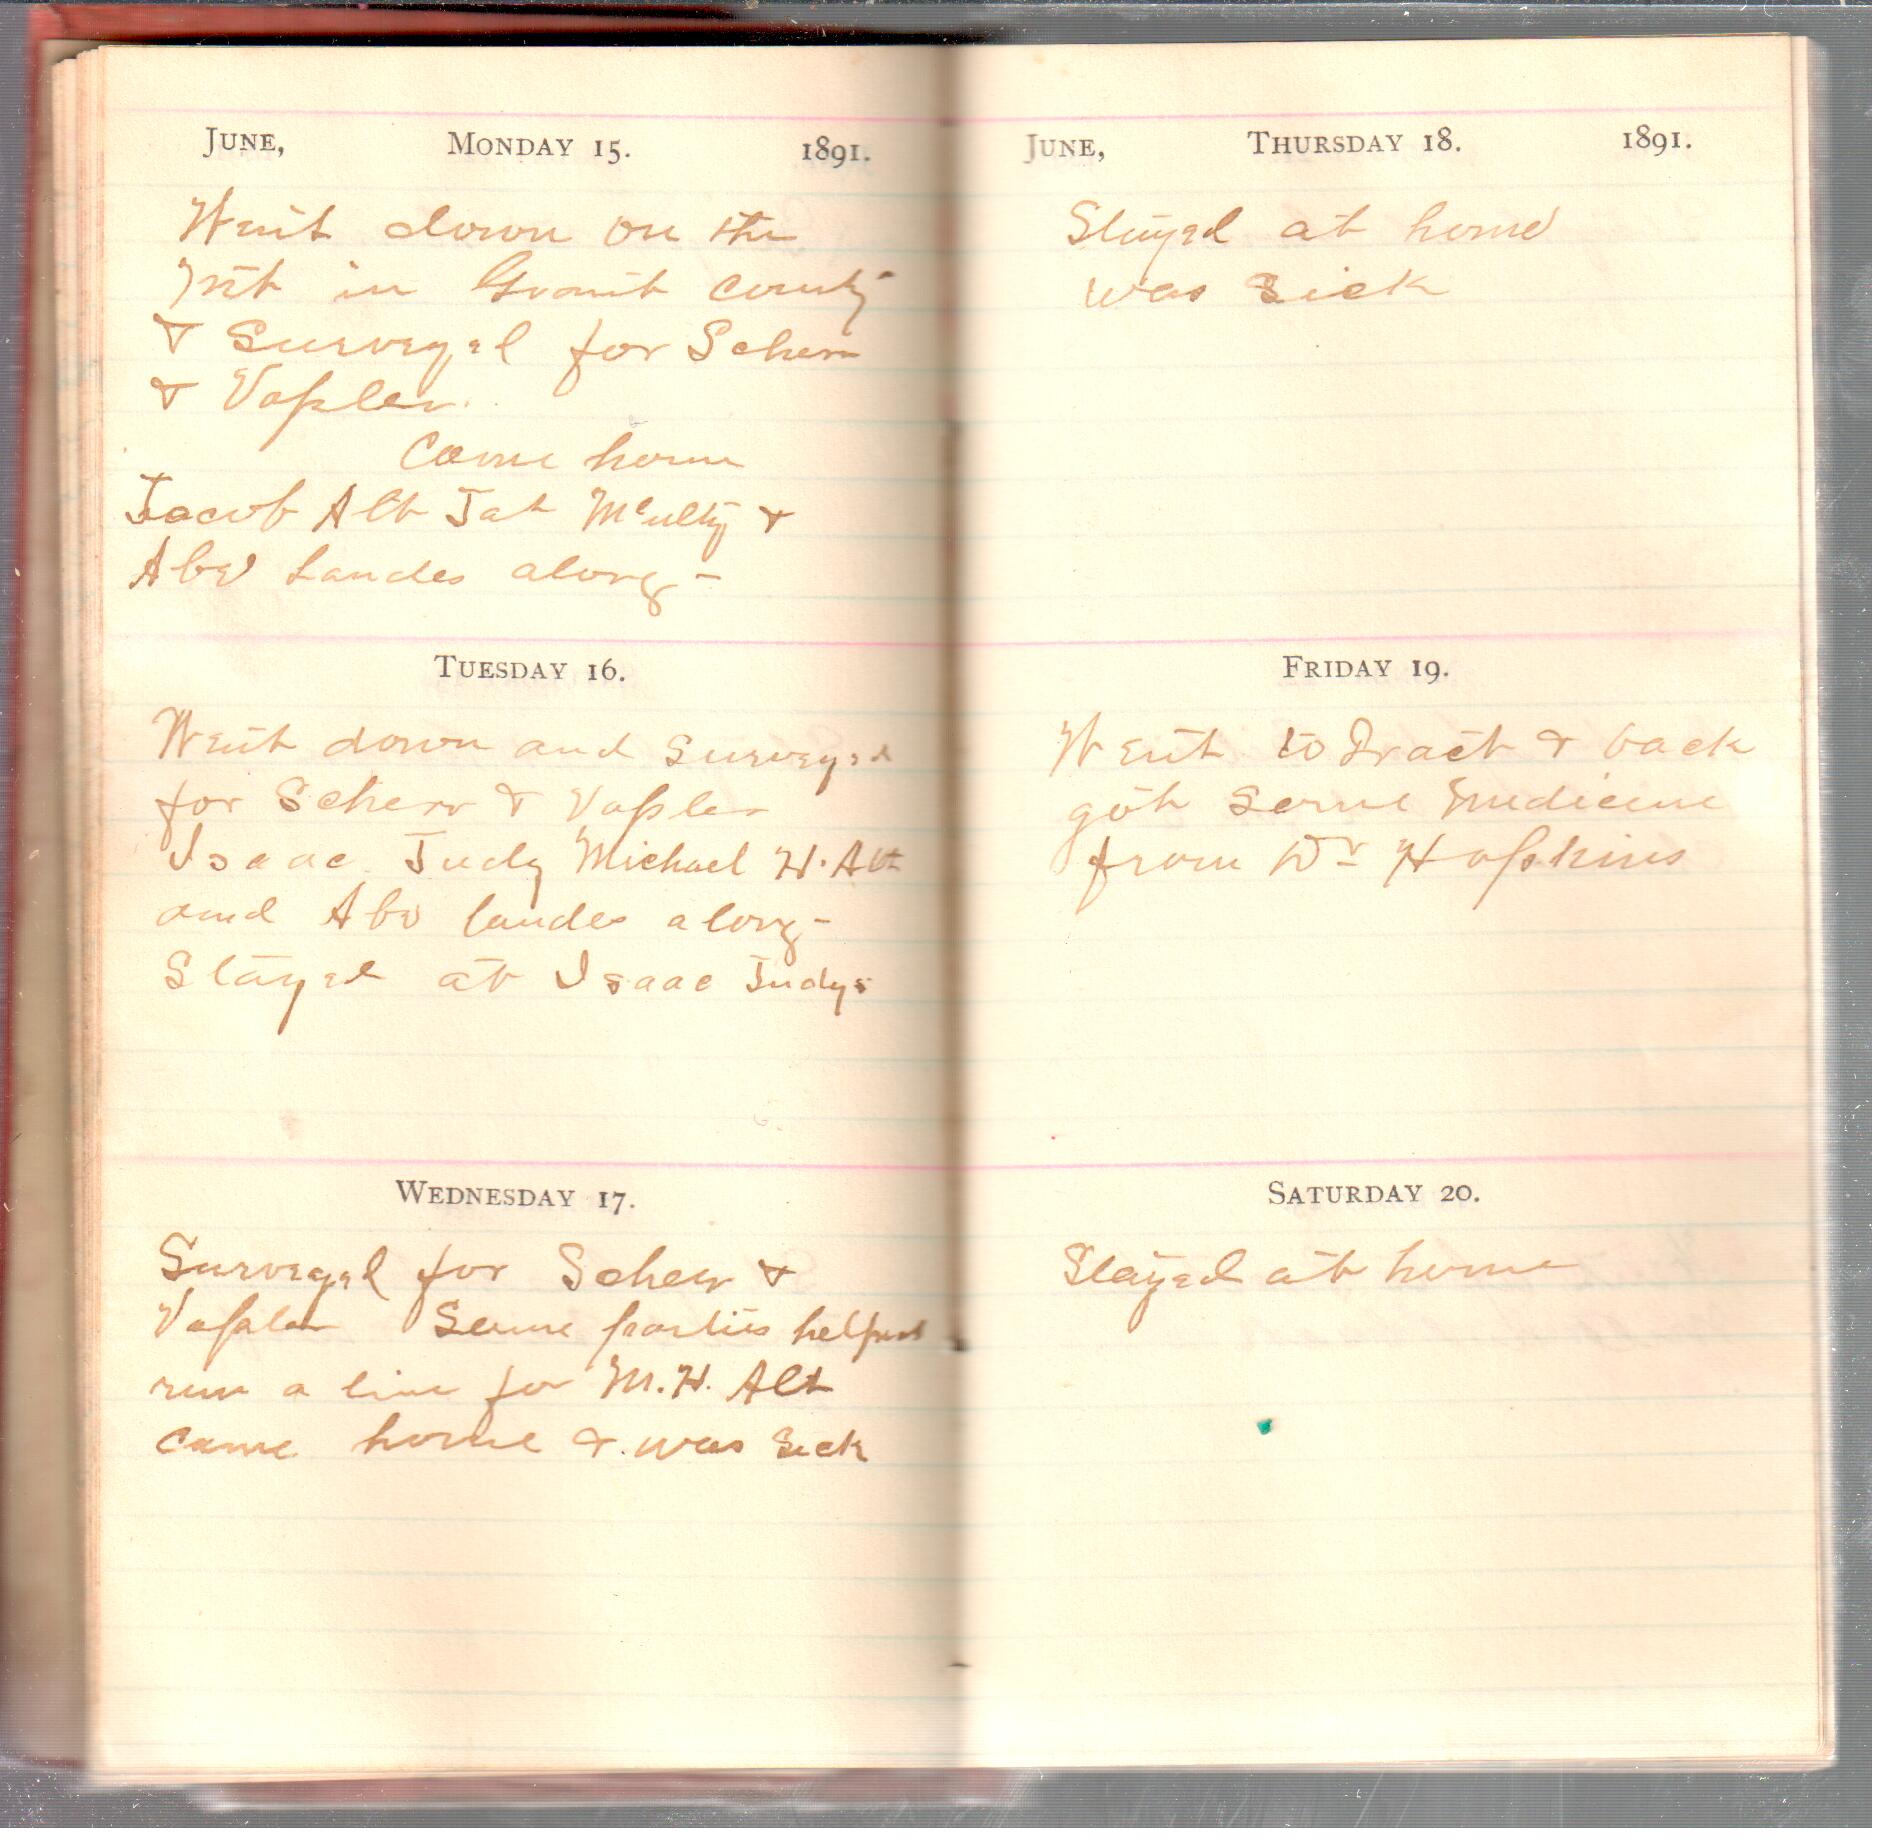 JUNE, MONDAY 15. 1891.
Went down on the
in Grant County
& Surveyed for Scherr
& Vossler
Came home
Jacob Alt &
Abe Landes along –
TUESDAY 16.
Went down and Surveyed
for Scherr & Vossler
Isaac Judy Michael H. Alt
and Abe landes along –
Stayed at Isaac Judys
WEDNESDAY 17.
Surveyed for Scherr &
Vossler Same parties helped
run a line for M. H. Alt
came home & was sick
JUNE, THURSDAY 18. 1891.
Stayed at home
was sick
FRIDAY 19.
Went to & back
got some Medicine
from Dr Hopkins
SATURDAY 20.
Stayed at home